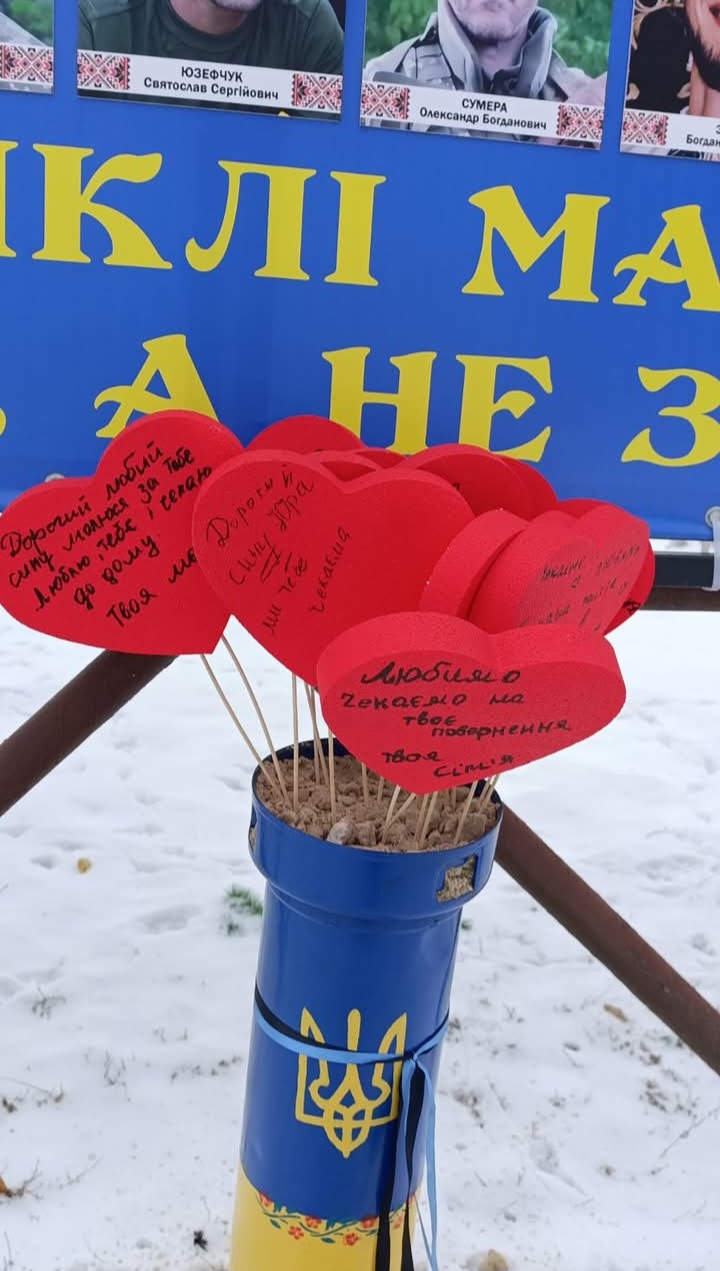 ЮЗЕФЧУК
Святослав Сергійович
СУМЕРА
Олександр Богданович
Богдан
КЛІ МА
А НЕ З
Дорогий любий
сину молюся за тебе
люблю тебе, чекаю
до дому
твоя ма
Дорогий
сину Юра
ми тебе
чекаєм
Любимо
чекаємо на
твоє
повернення
твоя
сім'я